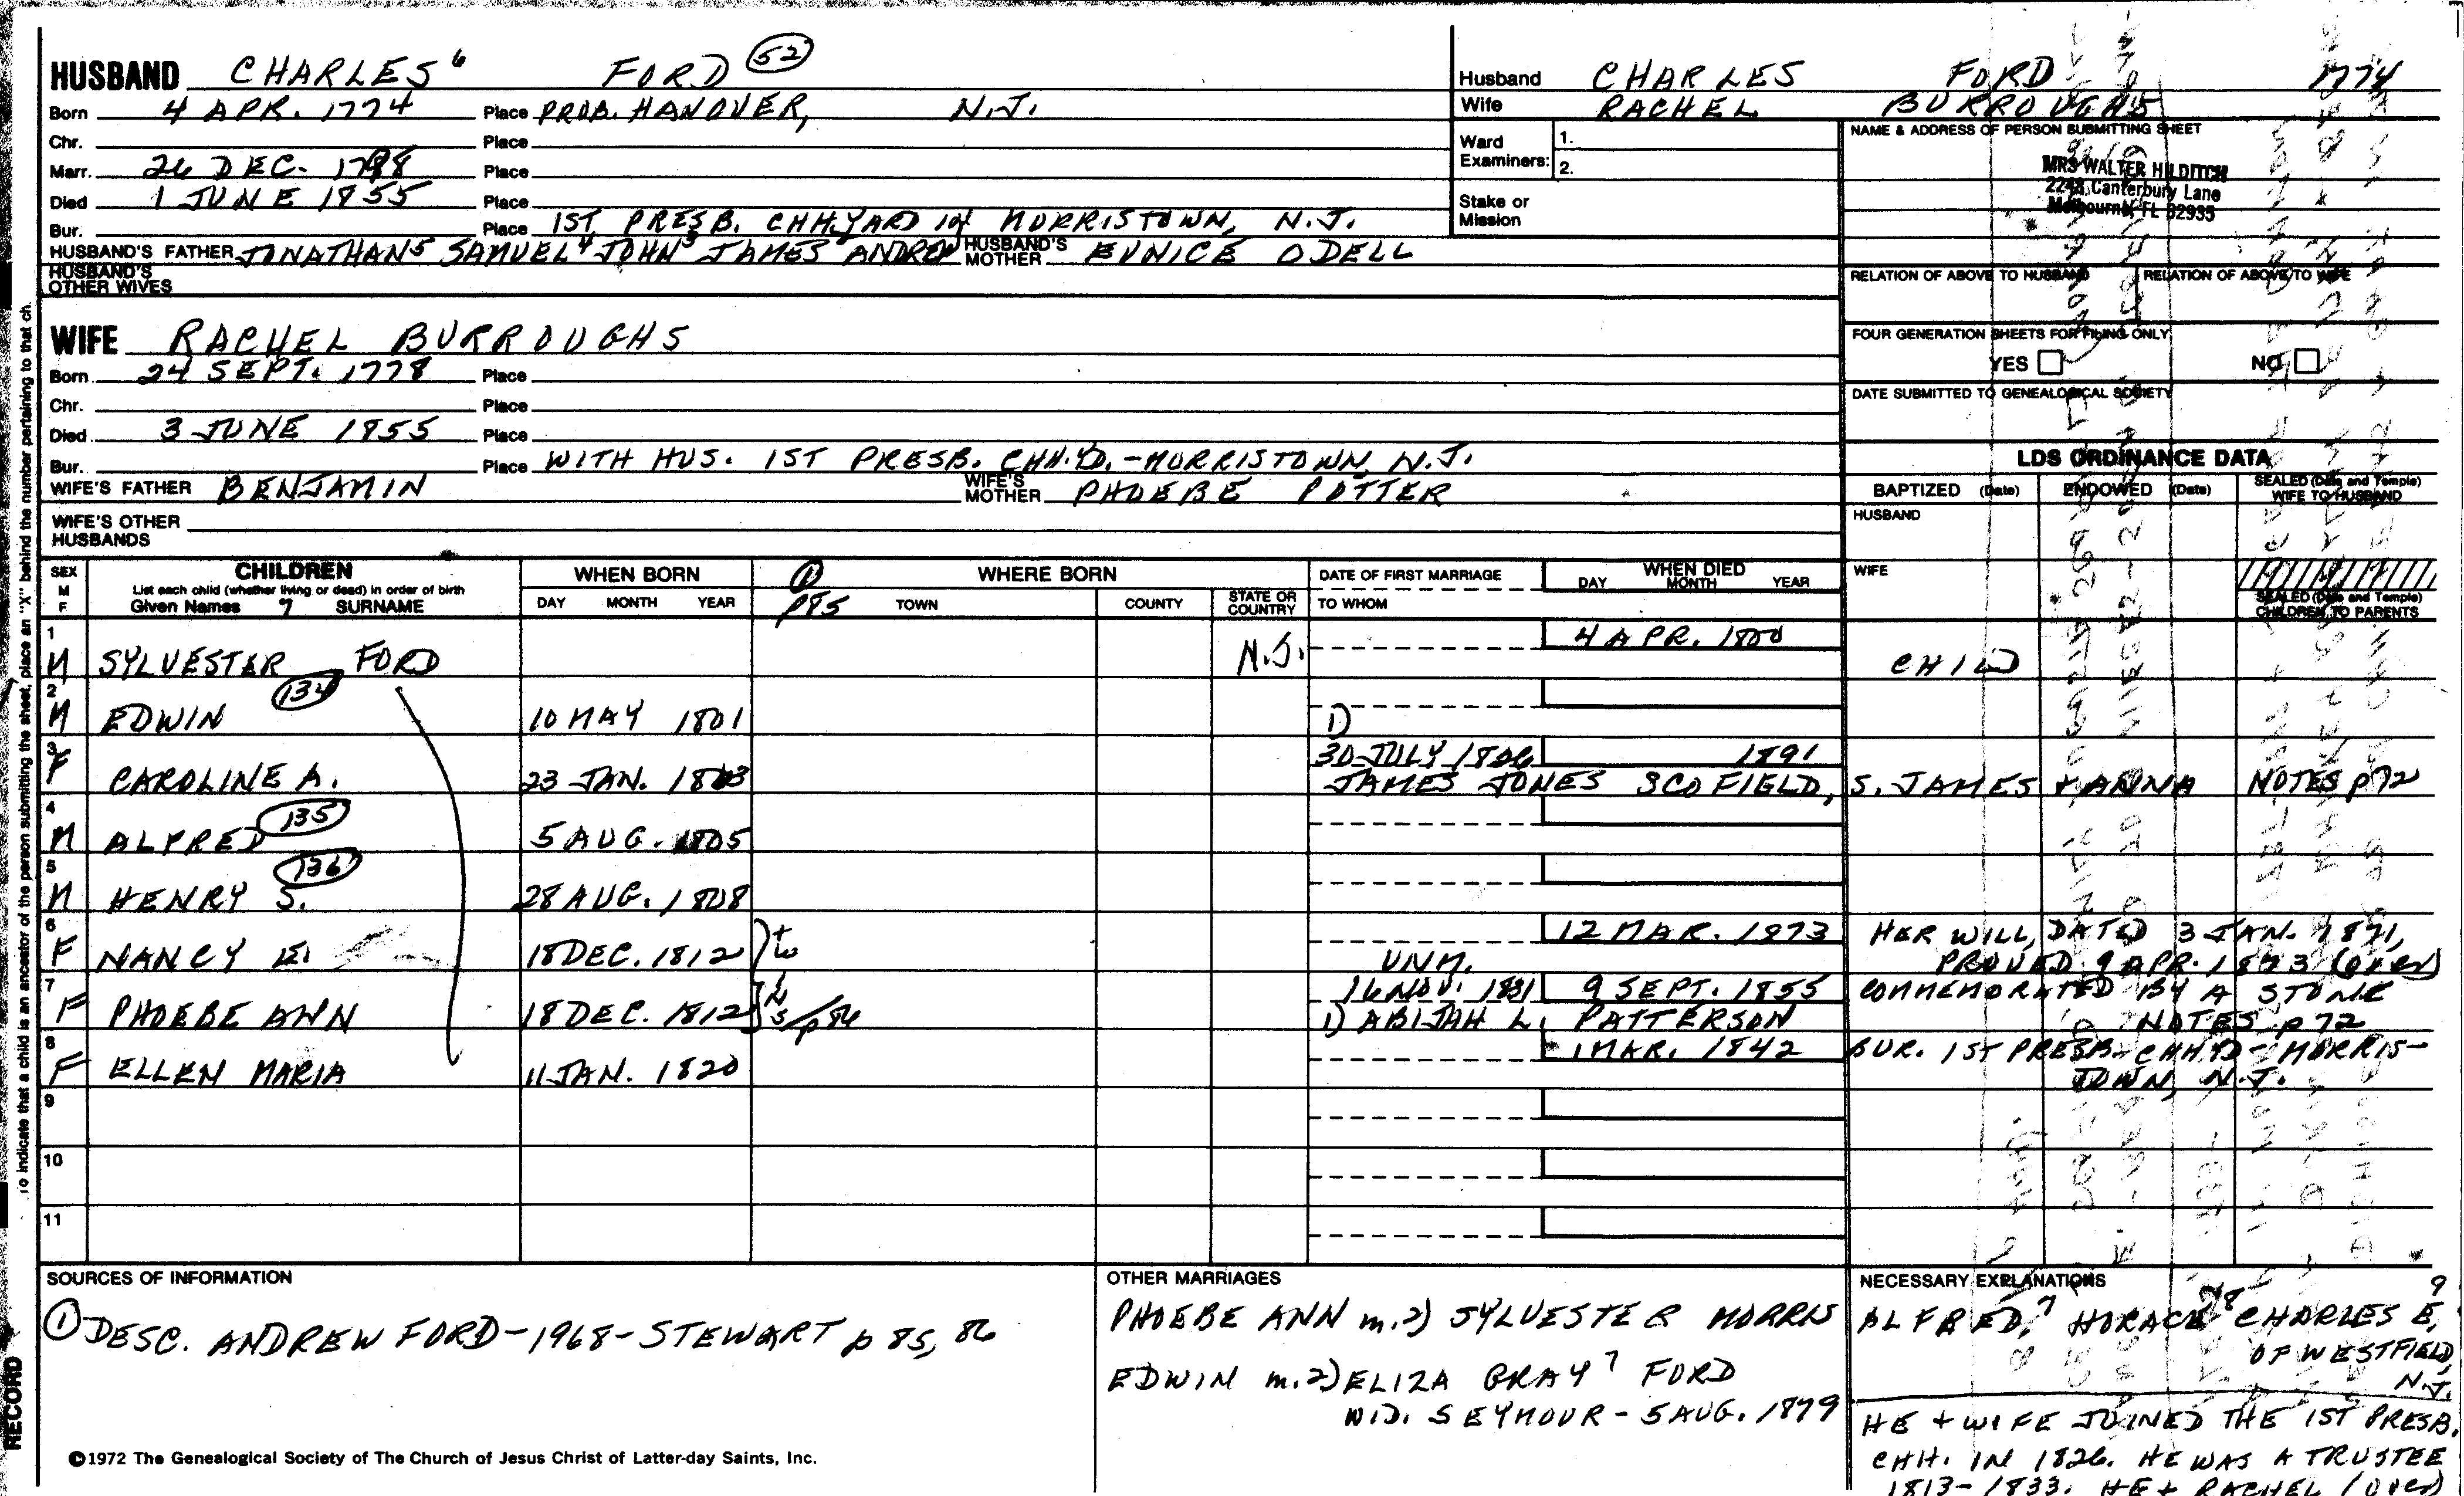 HUSBAND CHARLES⁶ FORD (52)
Born 4 APR. 1774 Place PROB. HANOVER, N.J.
Chr. Place
Marr. 26 DEC. 1798 Place
Died 1 JUNE 1855 Place
Bur. Place 1ST PRESB. CHH.YARD in MORRISTOWN, N.J.
HUSBAND'S FATHER JONATHAN⁵ SAMUEL⁴ JOHN³ JAMES² ANDREW HUSBAND'S MOTHER EUNICE ODELL
HUSBAND'S OTHER WIVES
Husband CHARLES FORD 1774
Wife RACHEL BURROUGHS
Ward Examiners: 1.
2.
Stake or Mission
NAME & ADDRESS OF PERSON SUBMITTING SHEET
MRS WALTER HILDITCH
2248 Canterbury Lane
Melbourne FL 32935
RELATION OF ABOVE TO HUSBAND RELATION OF ABOVE TO WIFE
FOUR GENERATION SHEETS FOR FILING ONLY
YES NO
DATE SUBMITTED TO GENEALOGICAL SOCIETY
WIFE RACHEL BURROUGHS
Born 24 SEPT. 1778 Place
Chr. Place
Died 3 JUNE 1855 Place
Bur. Place WITH HUS. 1ST PRESB. CHH.YD.-MORRISTOWN, N.J.
WIFE'S FATHER BENJAMIN WIFE'S MOTHER PHOEBE POTTER
WIFE'S OTHER HUSBANDS
LDS ORDINANCE DATA
BAPTIZED (Date) ENDOWED (Date) SEALED (Date and Temple) WIFE TO HUSBAND
HUSBAND
WIFE
SEALED (Date and Temple) CHILDREN TO PARENTS
SEX M F CHILDREN
List each child (whether living or dead) in order of birth
Given Names 7 SURNAME
WHEN BORN DAY MONTH YEAR
① p85 WHERE BORN TOWN COUNTY STATE OR COUNTRY
DATE OF FIRST MARRIAGE TO WHOM
WHEN DIED DAY MONTH YEAR
1 M SYLVESTER FORD N.J. 4 APR. 1800 CHILD
2 M EDWIN (134) 10 MAY 1801 1)
3 F CAROLINE A. 23 JAN. 1803 30 JULY 1826 1891
JAMES JONES SCOFIELD, S. JAMES + ANNA NOTES p72
4 M ALFRED (135) 5 AUG. 1805
5 M HENRY S. (136) 28 AUG. 1808
6 F NANCY E. 18 DEC. 1812 UNM. 12 MAR. 1873 HER WILL, DATED 3 JAN. 1871,
PROVED 9 APR. 1873 (over)
7 F PHOEBE ANN 18 DEC. 1812 twins/p86 16 NOV. 1831 9 SEPT. 1855 COMMEMORATED BY A STONE
1) ABIJAH L. PATTERSON NOTES p72
8 F ELLEN MARIA 11 JAN. 1820 1 MAR. 1842 BUR. 1ST PRESB. CHH.YD-MORRIS-
TOWN, N.J.
9
10
11
SOURCES OF INFORMATION
① DESC. ANDREW FORD-1968-STEWART p 85, 86
OTHER MARRIAGES
PHOEBE ANN m.2) SYLVESTER MORRIS
EDWIN m.2) ELIZA GRAY⁷ FORD
WID. SEYMOUR - 5 AUG. 1879
NECESSARY EXPLANATIONS
ALFRED,⁷ HORACE⁸ CHARLES E,⁹
OF WESTFIELD,
N.J.
HE + WIFE JOINED THE 1ST PRESB.
CHH. IN 1826. HE WAS A TRUSTEE
1813-1833. HE + RACHEL (over)
©1972 The Genealogical Society of The Church of Jesus Christ of Latter-day Saints, Inc.
To indicate that a child is an ancestor of the person submitting the sheet, place an "X" behind the number pertaining to that ch.
RECORD